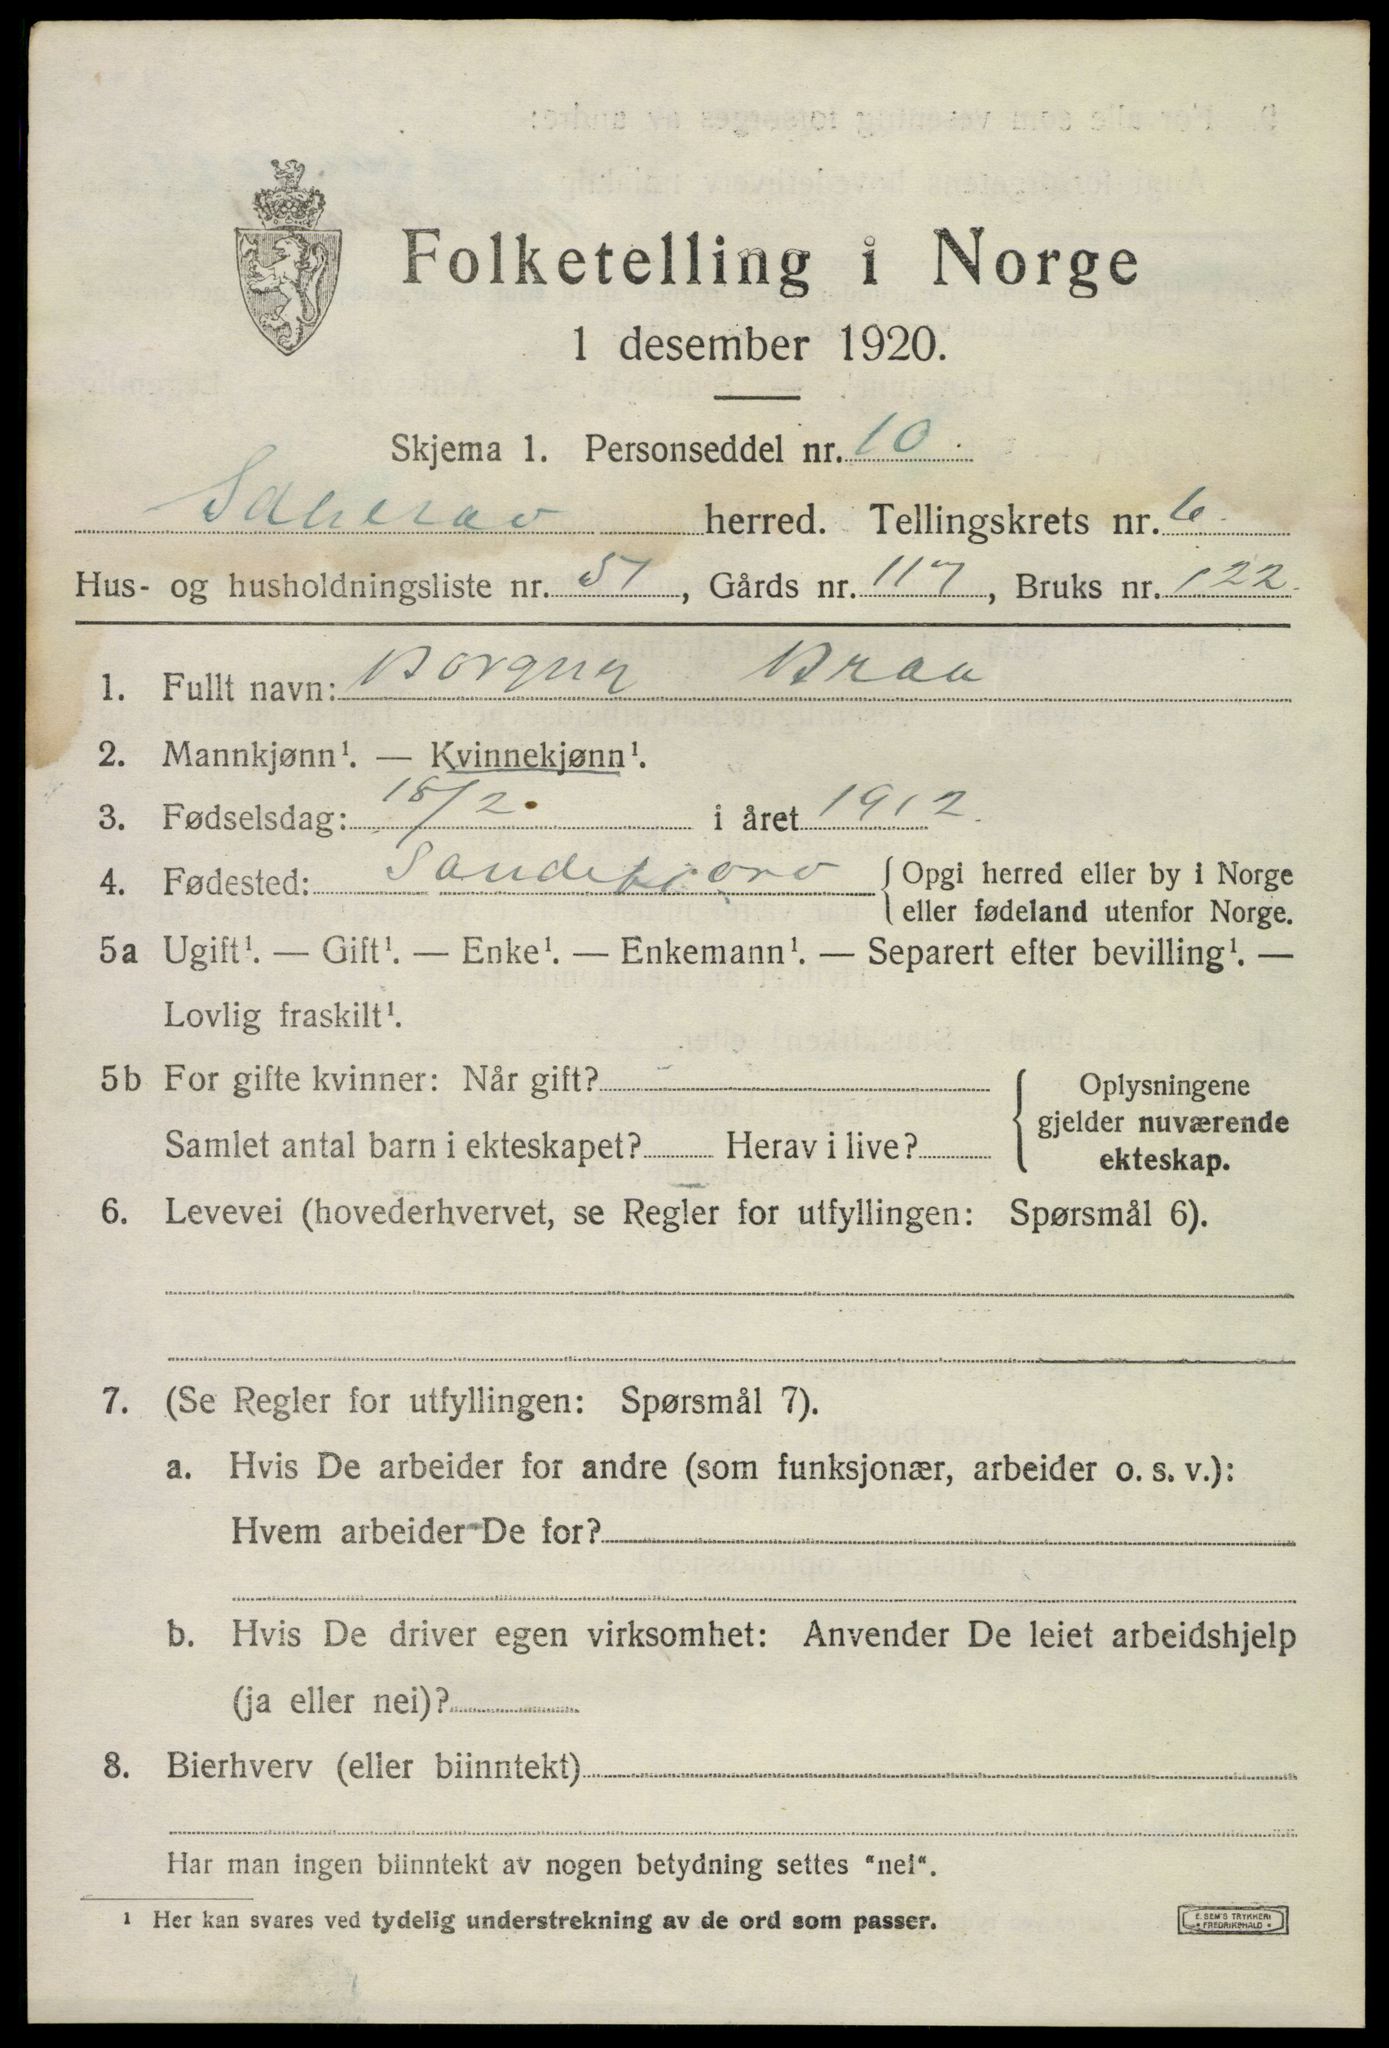 Folketelling i Norge
1 desember 1920.
Skjema 1. Personseddel nr. 10
herred. Tellingskrets nr. 6
Hus- og husholdningsliste nr. 51, Gårds nr. 117, Bruks nr. 122
1. Fullt navn: Borgny Braa
2. Mannkjønn¹. — Kvinnekjønn¹.
3. Fødselsdag: 18/2 i året 1912
4. Fødested: Sandefjord { Opgi herred eller by i Norge
eller fødeland utenfor Norge.
5a Ugift¹. — Gift¹. — Enke¹. — Enkemann¹. — Separert efter bevilling¹. —
Lovlig fraskilt¹.
5b For gifte kvinner: Når gift? { Oplysningene
gjelder nuværende
Samlet antal barn i ekteskapet? Herav i live?
ekteskap.
6. Levevei (hovederhvervet, se Regler for utfyllingen: Spørsmål 6).
7. (Se Regler for utfyllingen: Spørsmål 7).
a. Hvis De arbeider for andre (som funksjonær, arbeider o. s. v.):
Hvem arbeider De for?
b. Hvis De driver egen virksomhet: Anvender De leiet arbeidshjelp
(ja eller nei)?
8. Bierhverv (eller biinntekt)
Har man ingen biinntekt av nogen betydning settes "nei".
¹ Her kan svares ved tydelig understrekning av de ord som passer.
E. SEM'S TRYKKERI
FREDRIKSHALD